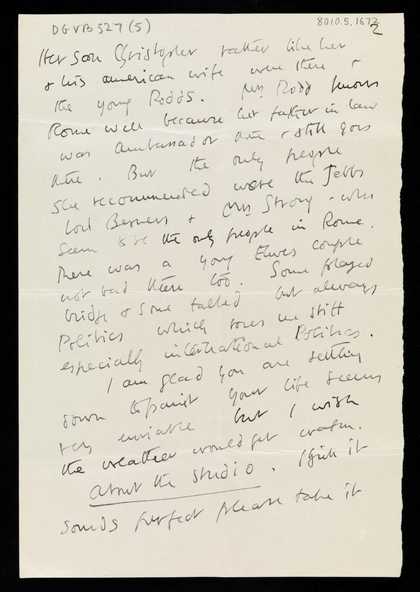 DGVB527 (5)
8010.5.1673
2
Her son Christopher rather like her
& his american wife were there &
the young Rodds. Mrs Rodd knows
Rome well because her father in law
was ambassador there & still goes
there. But the only people
she recommended were the Jebbs
Lord Berners & Mrs Strong - who
seem to be the only people in Rome.
There was a young Elwes couple
not bad there too. Some played
bridge & some talked but always
Politics which bores me stiff
especially international Politics.
I am glad you are settling
down to paint your life seems
very enviable but I wish
the weather would get warm.
about the studio. I think it
sounds perfect please take it